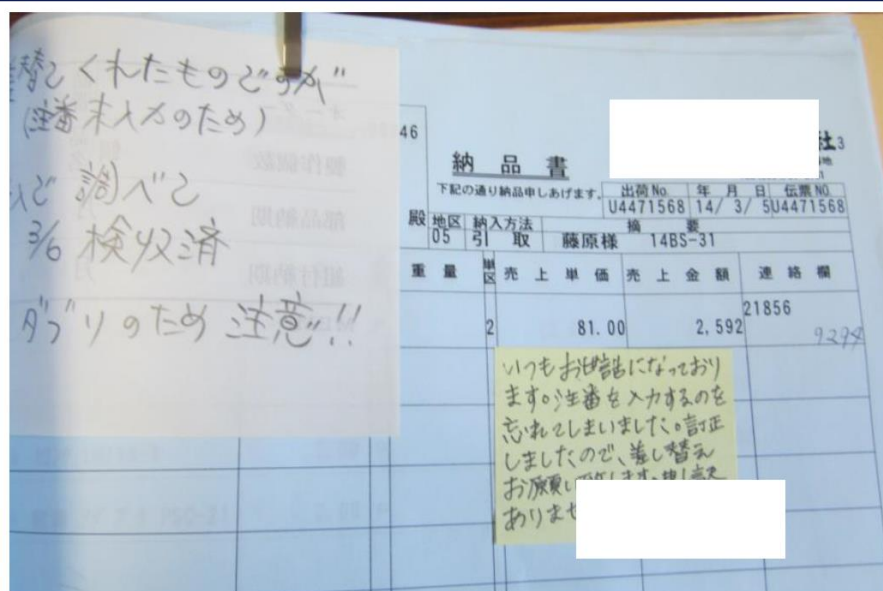 替てくれたものですが
(注番未入力のため)
で調べて
3/6 検収済
ダブリのため 注意!!
46
納品書
下記の通り納品申しあげます。
社3
出荷No. 年 月 日 伝票NO.
U4471568 14/ 3/ 5 U4471568
殿 地区 納入方法 摘 要
05 引 取 藤原様 14BS-31
重 量 単区 売上単価 売上金額 連絡欄
21856
2 81.00 2,592
いつもお世話になっており
ます。注番を入力するのを
忘れてしまいました。訂正
しましたので、差し替え
お願い致します。申し訳
ありませ